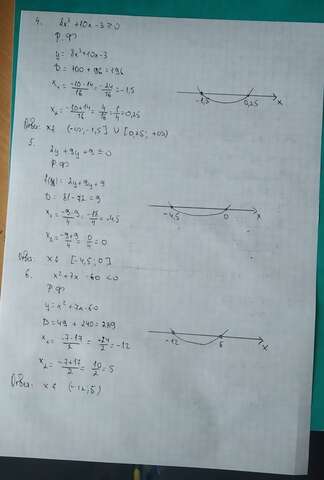 4. 8x² + 10x - 3 ≥ 0
Р.Ф
y = 8x² + 10x - 3
D = 100 + 96 = 196
x₁ = -10-14/16 = -24/16 = -1,5
-1,5 0,25 x
x₂ = -10+14/16 = 4/16 = 1/4 = 0,25
Ответ: x ∈ (-∞, -1,5] ∪ [0,25; +∞)
5. 2y + 9y + 9 ≤ 0
Р.Ф
f(y) = 2y + 9y + 9
D = 81 - 72 = 9
x₁ = -9-9/4 = -18/4 = -4,5
-4,5 0 x
x₂ = -9+9/4 = 0/4 = 0
Ответ: x ∈ [-4,5; 0]
6. x² + 7x - 60 < 0
Р.Ф
y = x² + 7x - 60
D = 49 + 240 = 289
x₁ = -7-17/2 = -24/2 = -12
-12 5 x
x₂ = -7+17/2 = 10/2 = 5
Ответ: x ∈ (-12; 5)